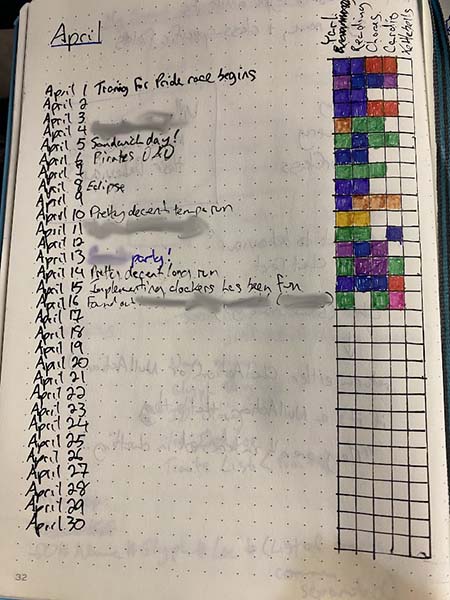 April
Reading
Chores
Cardio
Kettlebells
April 1 Training for Pride race begins
April 2
April 3
April 4
April 5 Sandwich day!
April 6 Pirates
April 7
April 8 Eclipse
April 9
April 10 Pretty decent tempo run
April 11
April 12
April 13 party!
April 14 Pretty decent long run
April 15 Implementing clackers has been fun
April 16 Found out
April 17
April 18
April 19
April 20
April 21
April 22
April 23
April 24
April 25
April 26
April 27
April 28
April 29
April 30
32